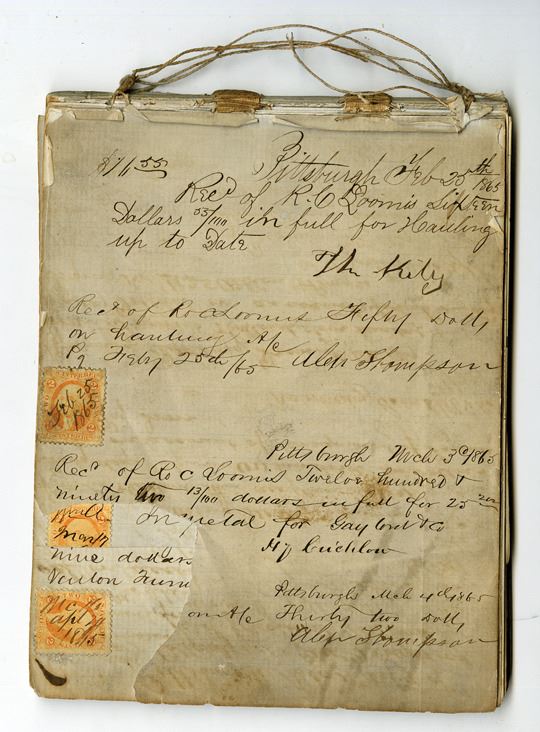 $16 55
Pittsburgh Feb 25th
1865
Rec'd of R. C Loomis Sixteen
Dollars 55/100 in full for Hauling
up to Date
Rec'd of Ro C Loomis Fifty Dolls
on hauling A/c
P, Feby 25th/65 Alex Thompson
Feb 25
1865
Pittsburgh Mch 3d 1865
Rec'd of Ro C Loomis Twelve hundred &
ninety two 13/100 dollars in full for 25
metal for Gaylord & Co
Hy
nine dollars
Pittsburgh Mch 4th 1865
on A/c Thirty two Dolls
Alex Thompson
Apl
1865